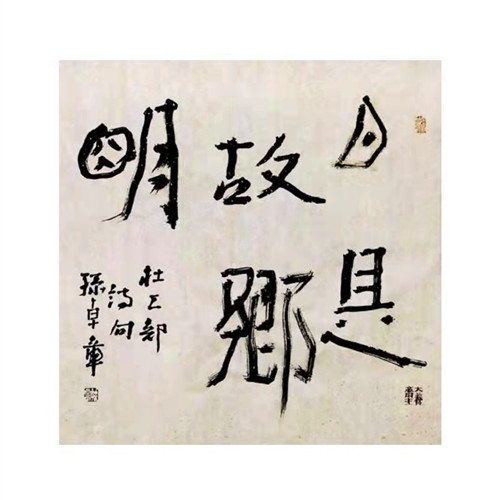 月是
故鄉
明
杜工部
詩句
孫卓章